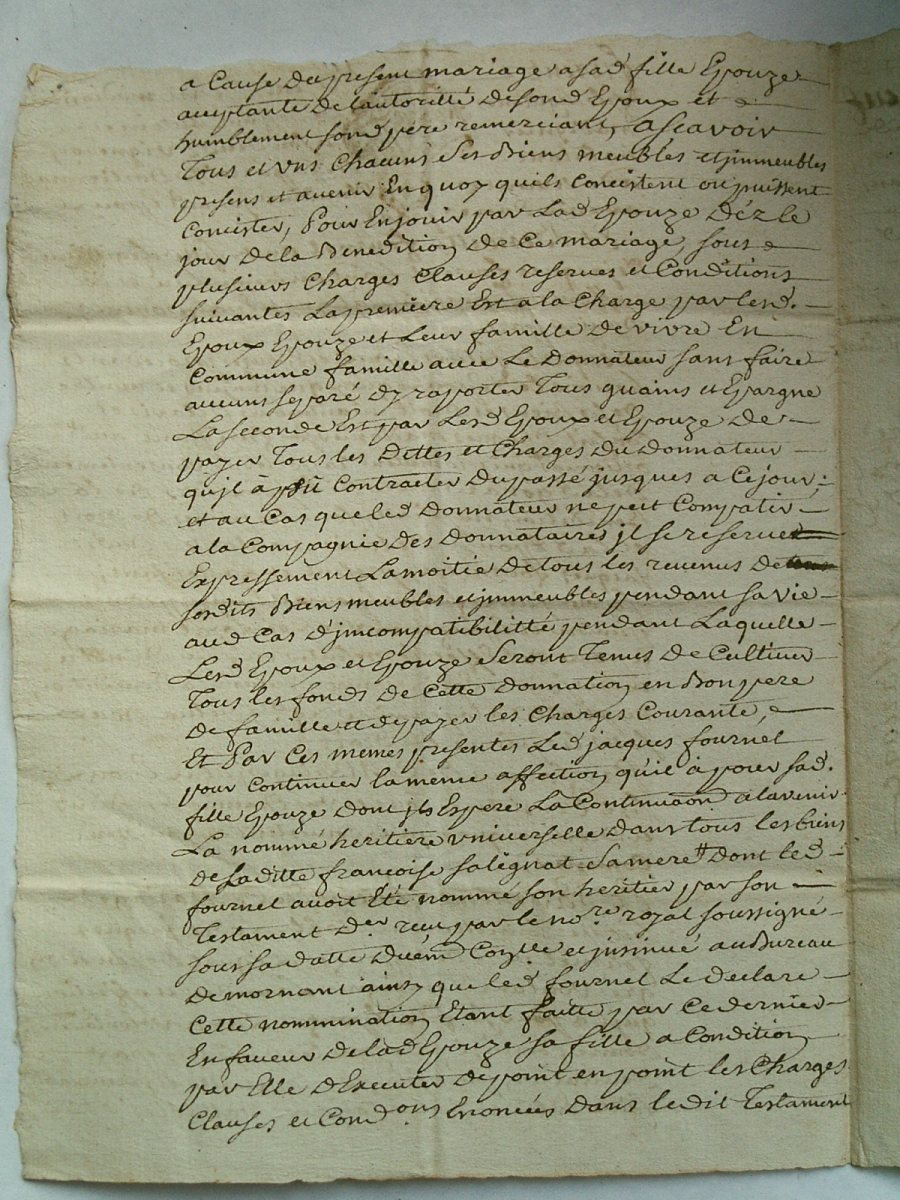 a Cause du present mariage a sad fille Epouze
acceptante de l'autoritté de sond Epoux et
humblement sond pere remerciant, ascavoir
Tous et uns Chacuns ses Biens meubles et jmmeubles
presens et avenir En quoy quils Concistent ou puissent
Concister, Pour En jouir par Lad Epouze Déz le
jour de la Benedition de Ce mariage, sous
plusieurs Charges Clauses reserves et Conditions
suivantes La premiere Est a la Charge par lesd.
Epoux Epouze et Leur famille de vivre En
Commune famille avec Le Donnateur sans faire
aucuns separé dy raporter Tous guains et Epargne
La seconde Est par Lesd Epoux et Epouze De
payer Tous les dittes et Charges du Donnateur
qu'jl a pût Contracter Du passé jusques a Ce jour,
et au Cas que led Donnateur ne peut Compatir
a la Compagnie des Donnataires jl se reserve
Expressement La moitié de tous les revenus de
sesdits Biens meubles et jmmeubles pendant sa vie
aud Cas d'jmcompatibilitté pendant Laquelle
Lesd Epoux et Epouze seront Tenus de Cultiver
Tous les fonds de Cette donnation en Bon pere
de famille et de payer les Charges Courante,
Et Par Ces memes presentes Led jacques fournel
pour Continuer la meme affection qu'il à pour sad.
fille Epouze dont jls Espere La Continuaon a lavenir
La nommé heritiere universelle dans tous les biens
de Laditte francoise salegnat sa mere dont led
fournel avoit Eté nommé son heritier par son
Testament Der recu par le nore royal soussigné
sous sa datte Duëm Conlle et jnsinué au Bureau
de mornant ainsy que led fournel Le declare
Cette nommination Etant faitte par Ce dernier
En faveur de lad Epouze sa fille a Condition
par Elle d'Executer de point en point les Charges
Clauses et Condons Enoncées dans le dit Testament